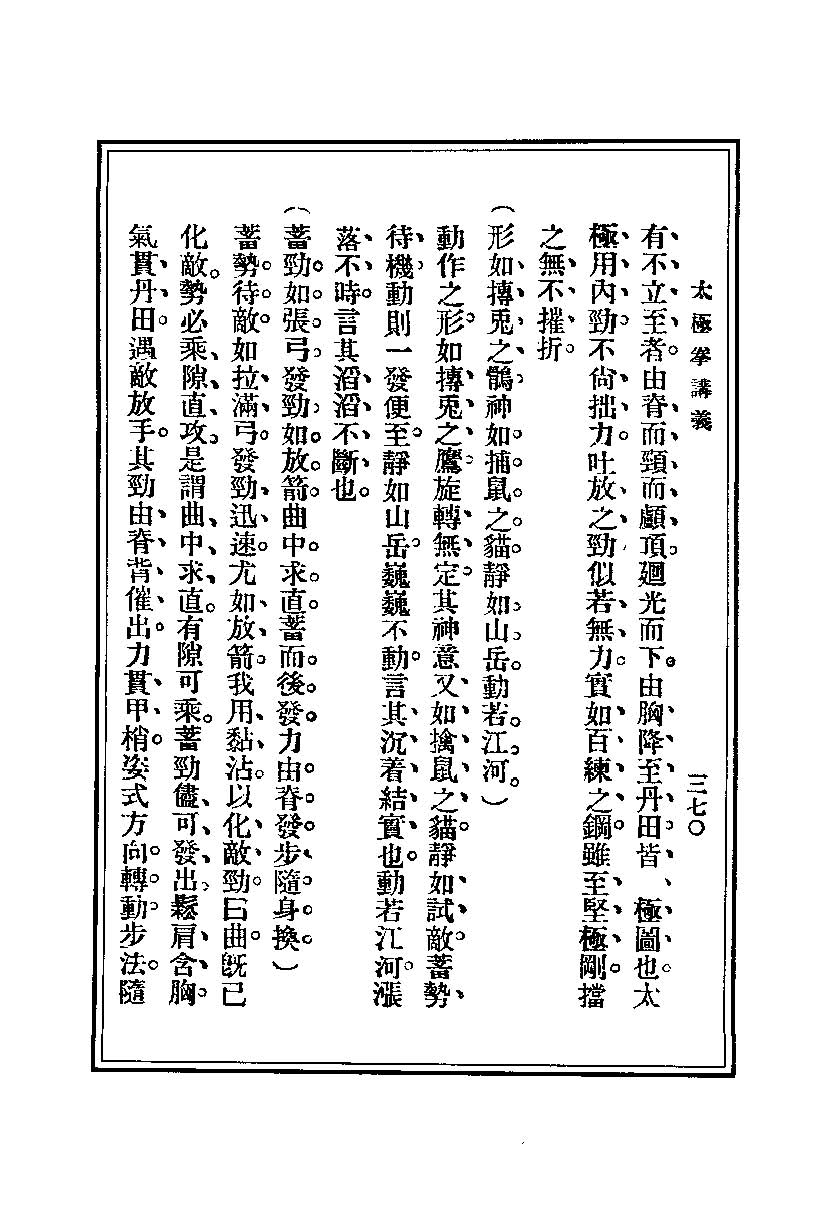 太極拳講義
三七〇
有不立至者。由脊而頸而顱頂。廻光而下。由胸降至丹田皆、極圖也。太
極用內勁。不尙拙力。吐放之勁、似若無力。實如百練之鋼。雖至堅極剛。擋
之無不摧折。
(形如摶兎之鶻。神如捕鼠之貓。靜如山岳。動若江河。)
動作之形。如摶兎之鷹。旋轉無定。其神意又如擒鼠之貓。靜如試敵。蓄勢、
待機動則一發便至。靜如山岳。巍巍不動。言其沉着結實也。動若江河。漲
落不時。言其滔滔不斷也。
(蓄勁如張弓。發勁如放箭。曲中求直。蓄而後發。力由脊發。步隨身換。)
蓄勢待敵。如拉滿弓。發勁迅速。尤如放箭。我用黏沾。以化敵勁。曰曲。旣已
化敵。勢必乘隙直攻。是謂曲中求直。有隙可乘。蓄勁儘可發出、鬆肩含胸。
氣貫丹田。遇敵放手。其勁由脊背催出。力貫甲梢。姿式方向。轉動步法。隨